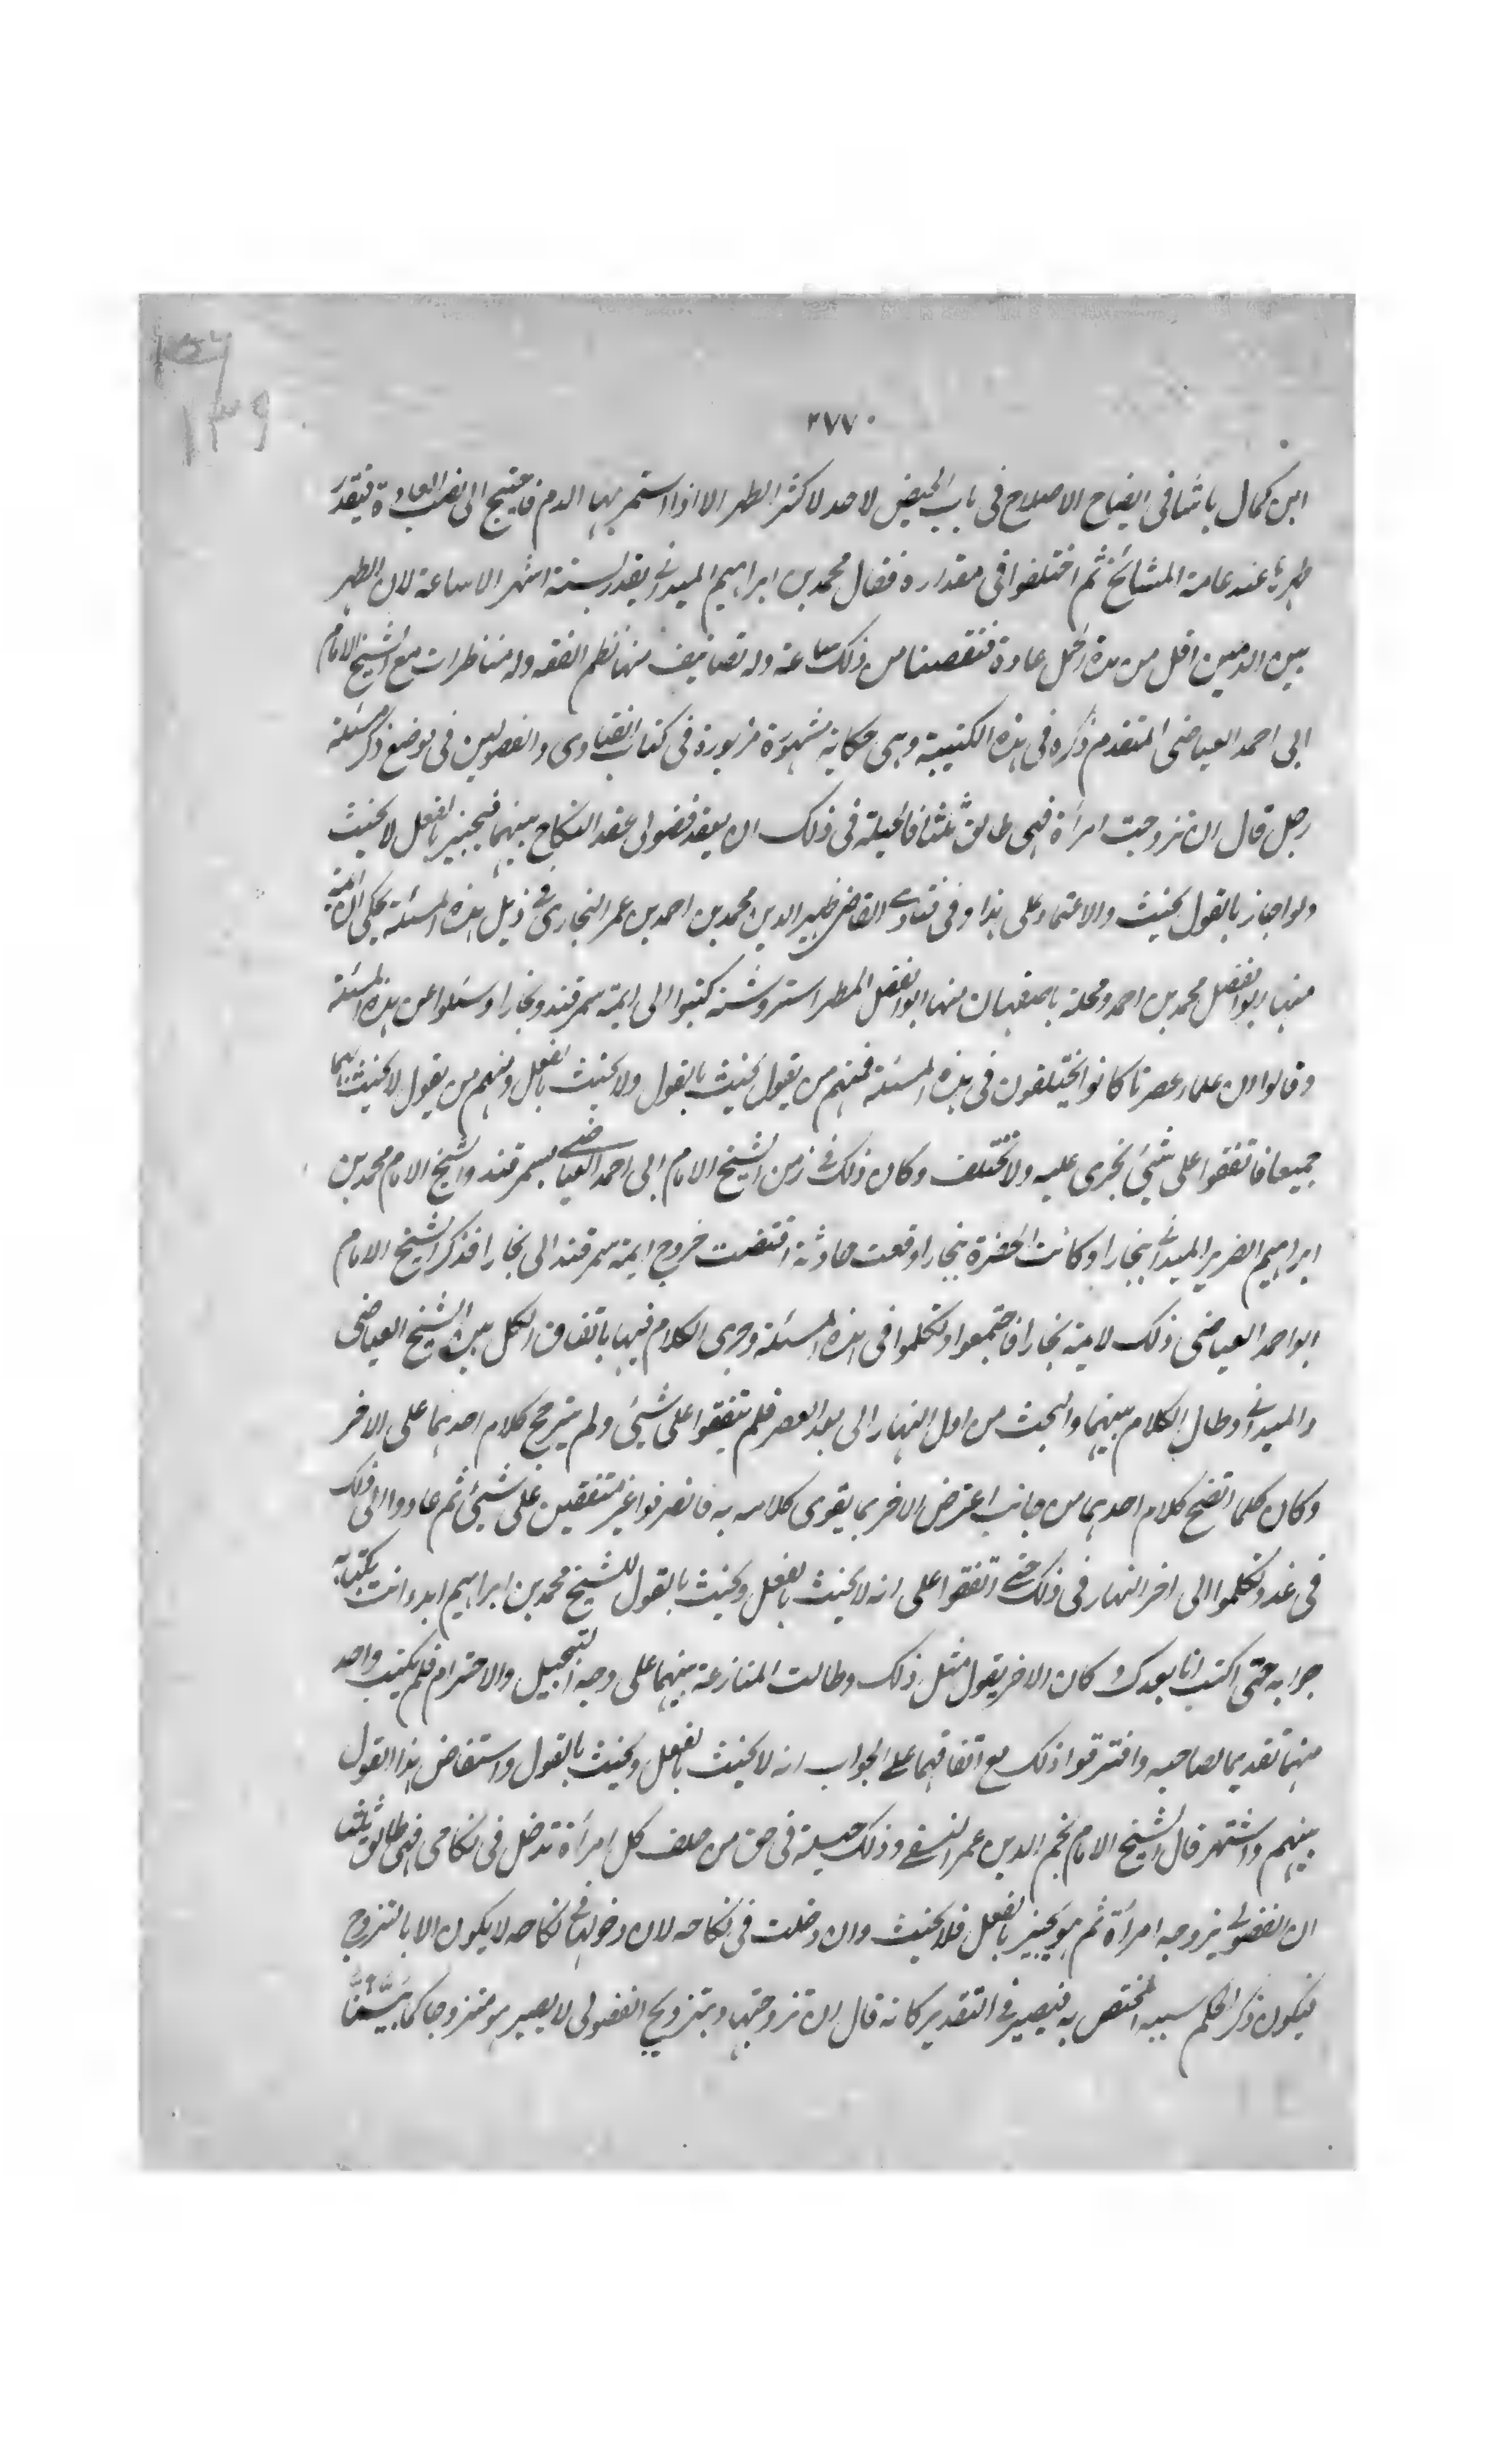 ١٣٩
٢٧٧
ابن كمال باشا فى ايضاح الاصلاح فى باب الحيض لا حد لاكثر الطهر الا اذا استمر بها الدم فاحتيج الى نصب العادة فيقدر
طهرها عند عامة المشائخ ثم اختلفوا فى مقداره فقال محمد بن ابراهيم الميدانى يقدر بستة اشهر الا ساعة لان الطهر
بين الدمين اقل من مدة الحمل عادة فنقصنا من ذلك ساعة وله تصانيف منها نظم الفقه وله مناظرات مع الشيخ الامام
ابى احمد العياضى المتقدم ذكره فى هذه الكتيبة وهى حكاية مشهورة مزبورة فى كتاب الفتاوى والفصولين فى موضع ذكر مسئلة
رجل قال ان تزوجت امرأة فهى طالق ثلثا فالحيلة فى ذلك ان يعقد فضولى عقد النكاح بينهما فيجيز بالفعل لا يحنث
ولو اجاز بالقول يحنث والاعتماد على هذا وفى فتاوى القاضى ظهير الدين محمد بن احمد بن عمر البخارى فى ذيل هذه المسئلة يحكى ان ائمة
منها ابو الفضل محمد بن احمد ومحلة باصفهان منها ابو الفضل المطر استروشنه كتبوا الى ايمة سمرقند وبخارا وسئلوا عن هذه المسئلة
وقالوا ان علماء عصرنا كانوا يختلفون فى هذه المسئلة فمنهم من يقول يحنث بالقول ولا يحنث بالفعل ومنهم من يقول لا يحنث بهما
جميعا فاتفقوا على شيئ نجرى عليه ولا نختلف وكان ذلك فى زمن الشيخ الامام ابى احمد العياضى بسمرقند والشيخ الامام محمد بن
ابراهيم الضرير الميدانى ببخارا وكانت الحضرة ببخارا وقعت حادثة اقتضت خروج ايمة سمرقند الى بخارا فذكر الشيخ الامام
ابو احمد العياضى ذلك لايمة بخارا فاجتمعوا وتكلموا فى هذه المسئلة وجرى الكلام فيها باتفاق الكل بين الشيخ العياضى
والميدانى وطال الكلام بينهما والبحث من اول النهار الى بعد العصر فلم يتفقوا على شيئ ولم يترجح كلام احدهما على الاخر
وكان كلما اتضح كلام احدهما من جانب اعترض الاخر بما يقوى كلامه به فانصرفوا غير متفقين على شيئ ثم عادوا الى ذلك
فى غد وتكلموا الى اخر النهار فى ذلك حتى اتفقوا على انه لا يحنث بالفعل ويحنث بالقول للشيخ محمد بن ابراهيم ابدء انت بكتابة
جوابه حتى اكتب انا بعدك وكان الاخر يقول مثل ذلك وطالت المنازعة بينهما على وجه التبجيل والاحترام فلم يكتب واحد
منهما تقديما لصاحبه وافترقوا ذلك مع اتفاقهما على الجواب انه لا يحنث بالفعل ويحنث بالقول واستفاض هذا القول
بينهم واشتهر قال الشيخ الامام نجم الدين عمر النسفى وذلك حيلة فى حق من حلف كل امرأة تدخل فى نكاحى فهى طالق ثلثا
ان الفضولى يزوجه امرأة ثم هو يجيز بالفعل فلا يحنث وان دخلت فى نكاحه لان دخولها فى نكاحه لا يكون الا بالتزوج
فيكون ذكر الحكم سببه المختص به فيصير فى التقدير كانه قال ان تزوجتها وبتزويج الفضولى لا يصير هو متزوجا كما بينا